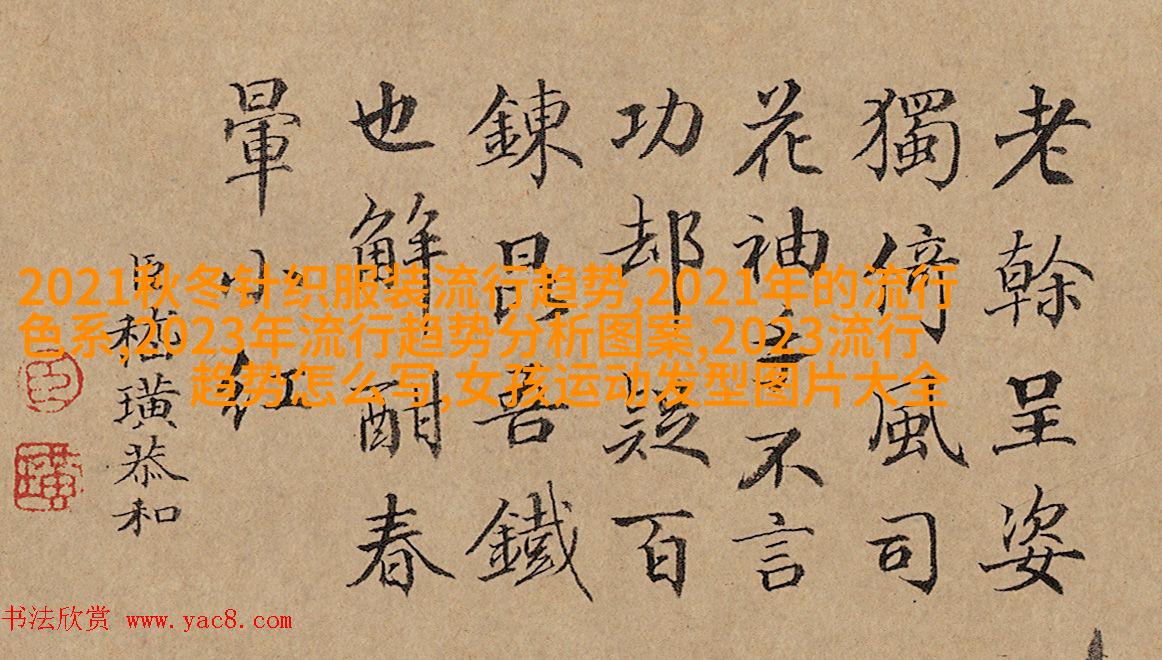 老幹呈姿
獨倚風司
花神主不言
功却疑百
鍊昆吾鐵
也解酣春
暈小紅
臣嵇璜恭和
臣
璜
2021秋冬针织服装流行趋势,2021年的流行
色系,2023年流行趋势分析图案,2023流行
趋势怎么写,女孩运动发型图片大全
书法欣赏 www.yac8.com